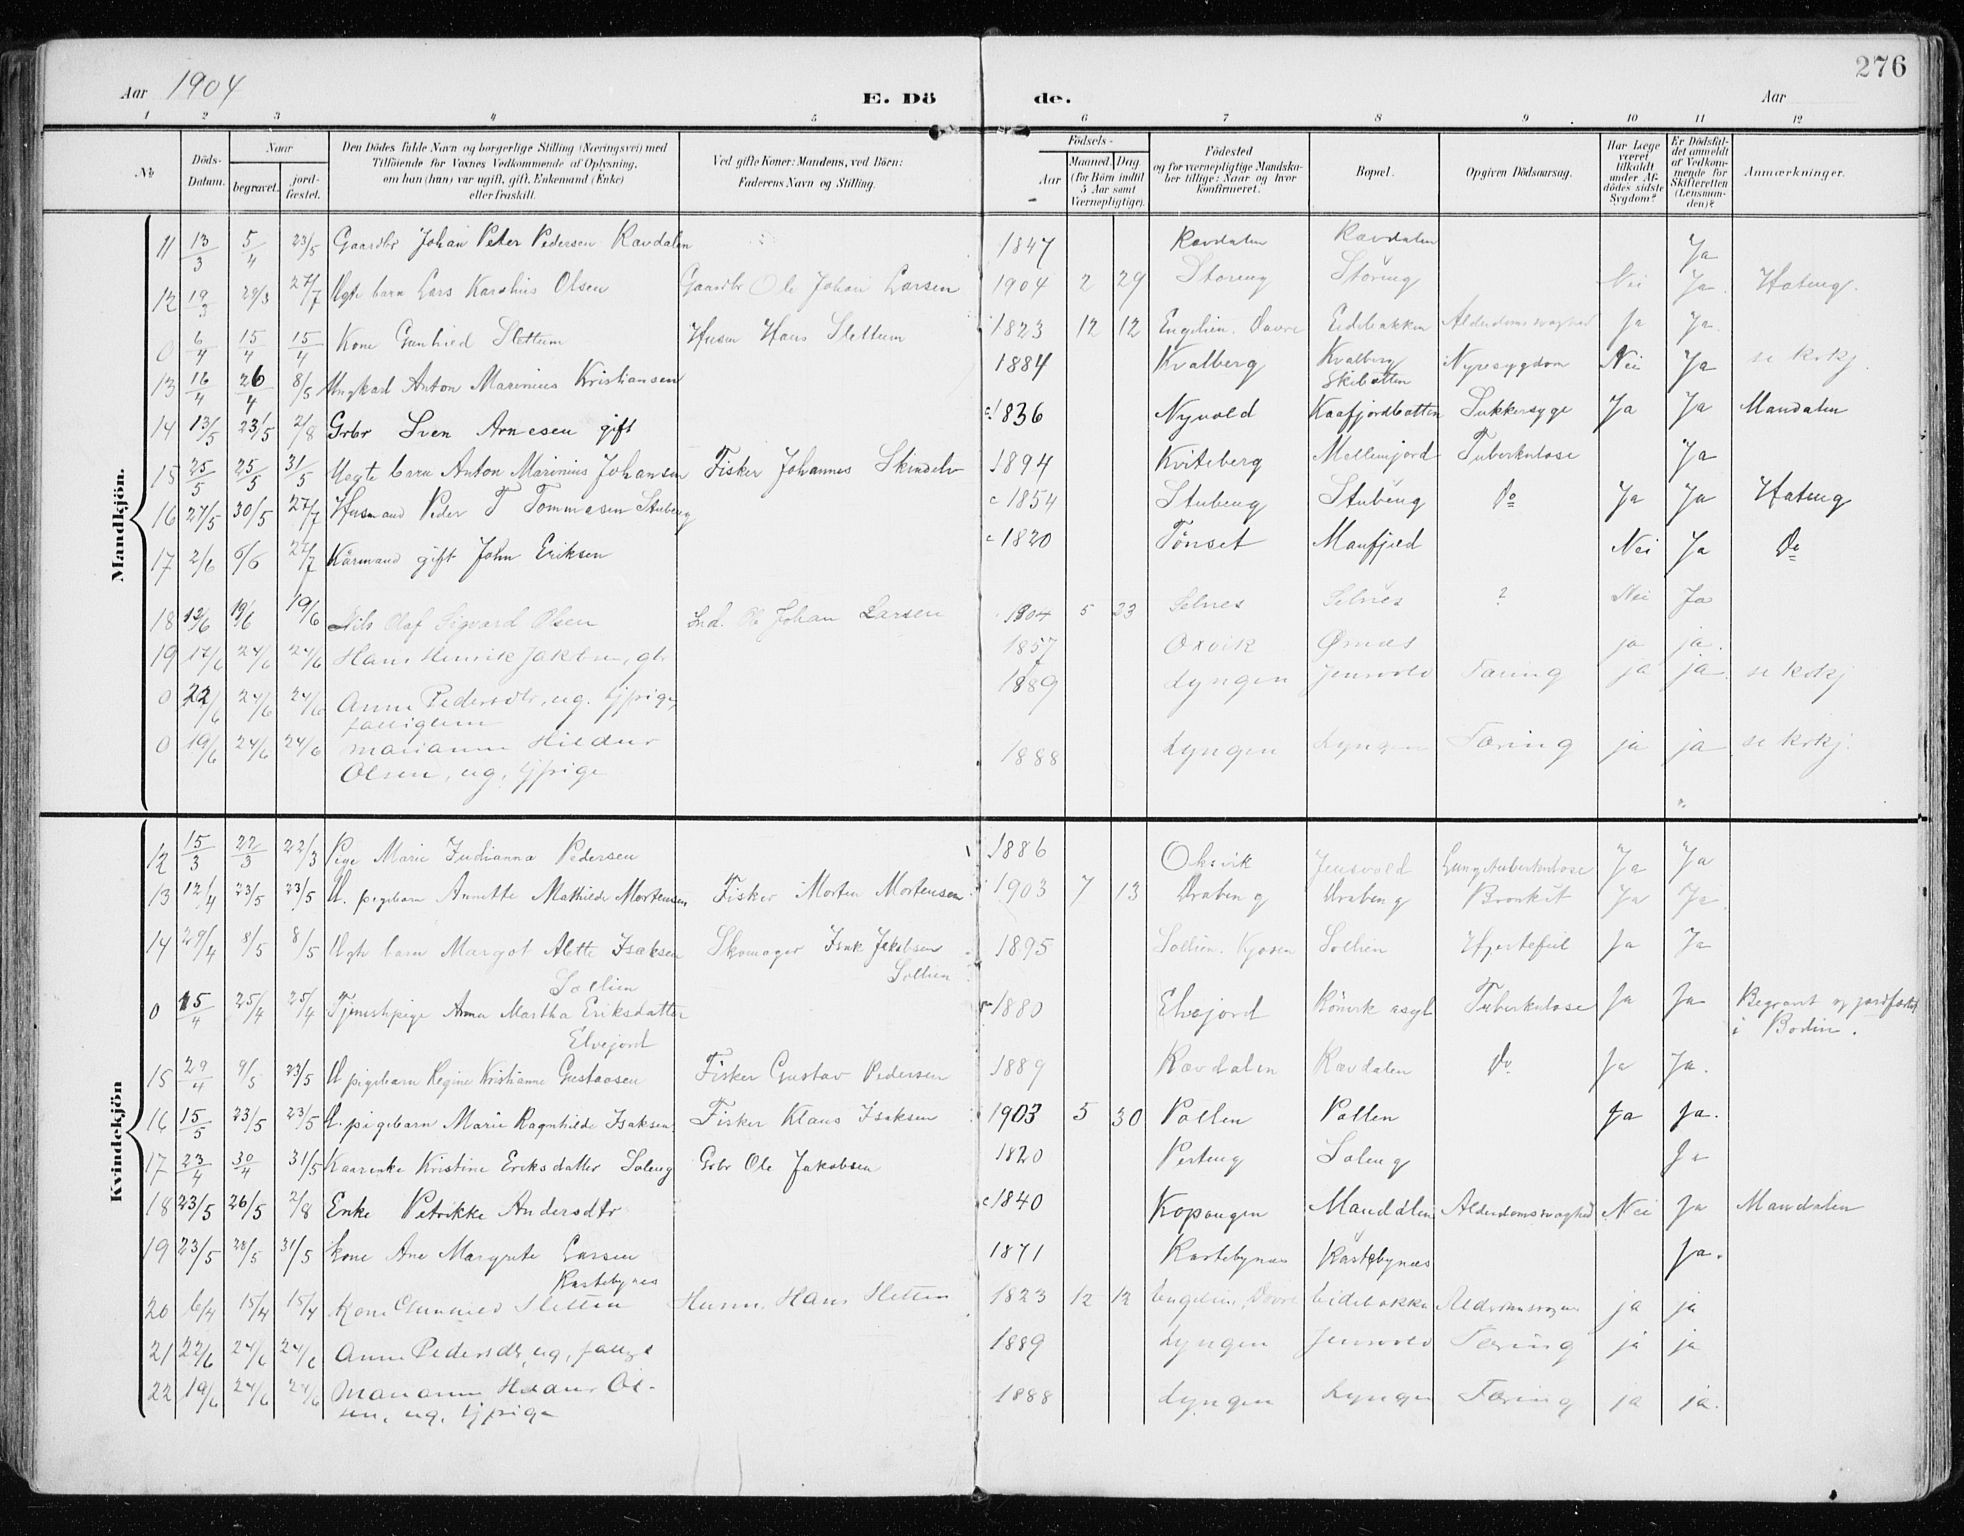 276
Aar 1904
E. Dö de.
Aar
1 2 3 4 5 6 7 8 9 10 11 12
No
Döds-Datum.
Naar
begravet.
jord-fæstet.
Den Dödes fulde Navn og borgerlige Stilling (Næringsvei) med
Tilföiende for Voxnes Vedkommende af Oplysning,
om han (hun) var ugift, gift, Enkemand (Enke)
eller fraskilt.
Ved gifte Koner: Mandens, ved Börn:
Faderens Navn og Stilling.
Födsels-
Aar
Maaned. Dag.
(for Börn indtil
5 Aar samt
Værnepligtige).
Födested
og for værnepligtige Mandska-
ber tillige: Naar og hvor
konfirmeret.
Bopæl.
Opgiven Dödsaarsag.
Har Læge
været
tilkaldt
under Af-
dödes sidste
Sygdom?
Er Dödsfal-
det anmeldt
af Vedkom-
mende for
Skifteretten
(Lensman-
den)?
Anmærkninger.
Mandkjön.
11 13/3 5/4 23/5 Gaardbr Johan Peter Pedersen Ravdalen 1847 Ravdalen Ravdalen Ja
12 19/3 29/3 27/7 Ugte barn Lars Karolius Olsen Gaardbr Ole Johan Larsen 1904 2 29 Storeng Storeng Nei Ja Hateng.
0 6/4 15/4 15/4 Kone Gunhied Slettum Husm Hans Slettum 1823 12 12 Engelien. Dovre Eidebakken Alderdomssvaghed Ja Ja
13 16/4 26/4 8/5 Ungkarl Anton Marinius Kristiansen 1884 Kvalberg Kvalberg Skibotten Nyresygdom Nei Ja se kvkj
14 13/5 23/5 2/8 Grbr Sven Arnesen gift c.1836 Nyvold Kaafjordbotten Sukkersyge Ja Ja Mandalen
15 25/5 25/5 31/5 Uegte barn Anton Marinius Johansen Fisker Johannes Skindelv 1894 Kviteberg Mellemjord Tuberkulose Ja
16 27/5 30/5 27/7 Husmand Peder T Tommasen Stubeng c 1854 Stubeng Stubeng Do Ja Ja Hateng
17 2/6 6/6 27/7 Kårmand gift John Eriksen c 1820 Tönset Manfjeld Nei Ja Do
18 12/6 19/6 19/6 Nils Olaf Sigvard Olsen Ind. Ole Johan Larsen 1904 5 23 Selnes Selnes ? Nei Ja
19 17/6 24/6 24/6 Hans Henrik Jakobsen, gbr 1857 Oxvik Ørnæs ja ja.
0 22/6 24/6 24/6 Anne Pedersdtr, ug. tjpige, 1889 Lyngen Jensvold Tæring ja ja se kvkj
0 19/6 24/6 24/6 Marianne Hildur 1888 Lyngen Lyngen Tæring ja ja se kvkj.
Olsen, ug, tjpige
Kvindekjön
12 15/3 22/3 22/3 Pige Marie Indianna Pedersen 1886 Oksvik Jensvold Lungetuberkulose Ja Ja
13 12/4 23/5 23/5 U. pigebarn Annette Mathilde Mortensen Fisker Morten Mortensen 1903 7 13 Drabeng Drabeng Bronkit Ja Ja
14 29/4 8/5 8/5 Ugte barn Margot Alette Isaksen Skomager Isak Jakobsen 1895 Sollien. Kjosen Sollien Hjertefeil Ja Ja
Sollien Sollien
0 15/4 25/4 25/4 Tjenestpige Anna Martha Eriksdatter 1880 Elvejord Rönvik asyl Tuberkulose Ja Ja Begravet og jordfæstet
Elvejord i Bodin.
15 29/4 9/5 23/5 U pigebarn Regine Kristianne Gustavsen Fisker Gustav Pedersen 1889 Rævdalen Rævdalen Do Ja Ja.
16 15/5 23/5 23/5 U. pigebarn Marie Ragnhilde Isaksen Fisker Klaus Isaksen 1903 5 30 Pollen Pollen Ja Ja.
17 23/4 30/4 31/5 Kaarenke Kristine Eriksdatter Soleng Grbr Ole Jakobsen 1820 Perteng Soleng Ja
18 23/5 26/5 2/8 Enke Petrikke Andersdtr c 1840 Kopangen Manddlen Alderdomssvaghed Nei Ja Mandalen
19 23/5 28/5 31/5 Kone Ane Margrete Larsen 1871 Rastebynæs Rastebynæs Ja.
Rastebynes
20 6/4 15/4 15/4 Kone Gunhied Sletten Husm. Hans Sletten 1823 12 12 Engelien, Dovre Eidebakke ja ja
21 22/6 24/6 24/6 Anne Pedersdtr, ug, 1889 Lyngen Jensvold Tæring ja ja
22 19/6 24/6 24/6 Marianne Hildur Ol- 1888 Lyngen Lyngen Tæring ja ja.
sen, ug, tjpige